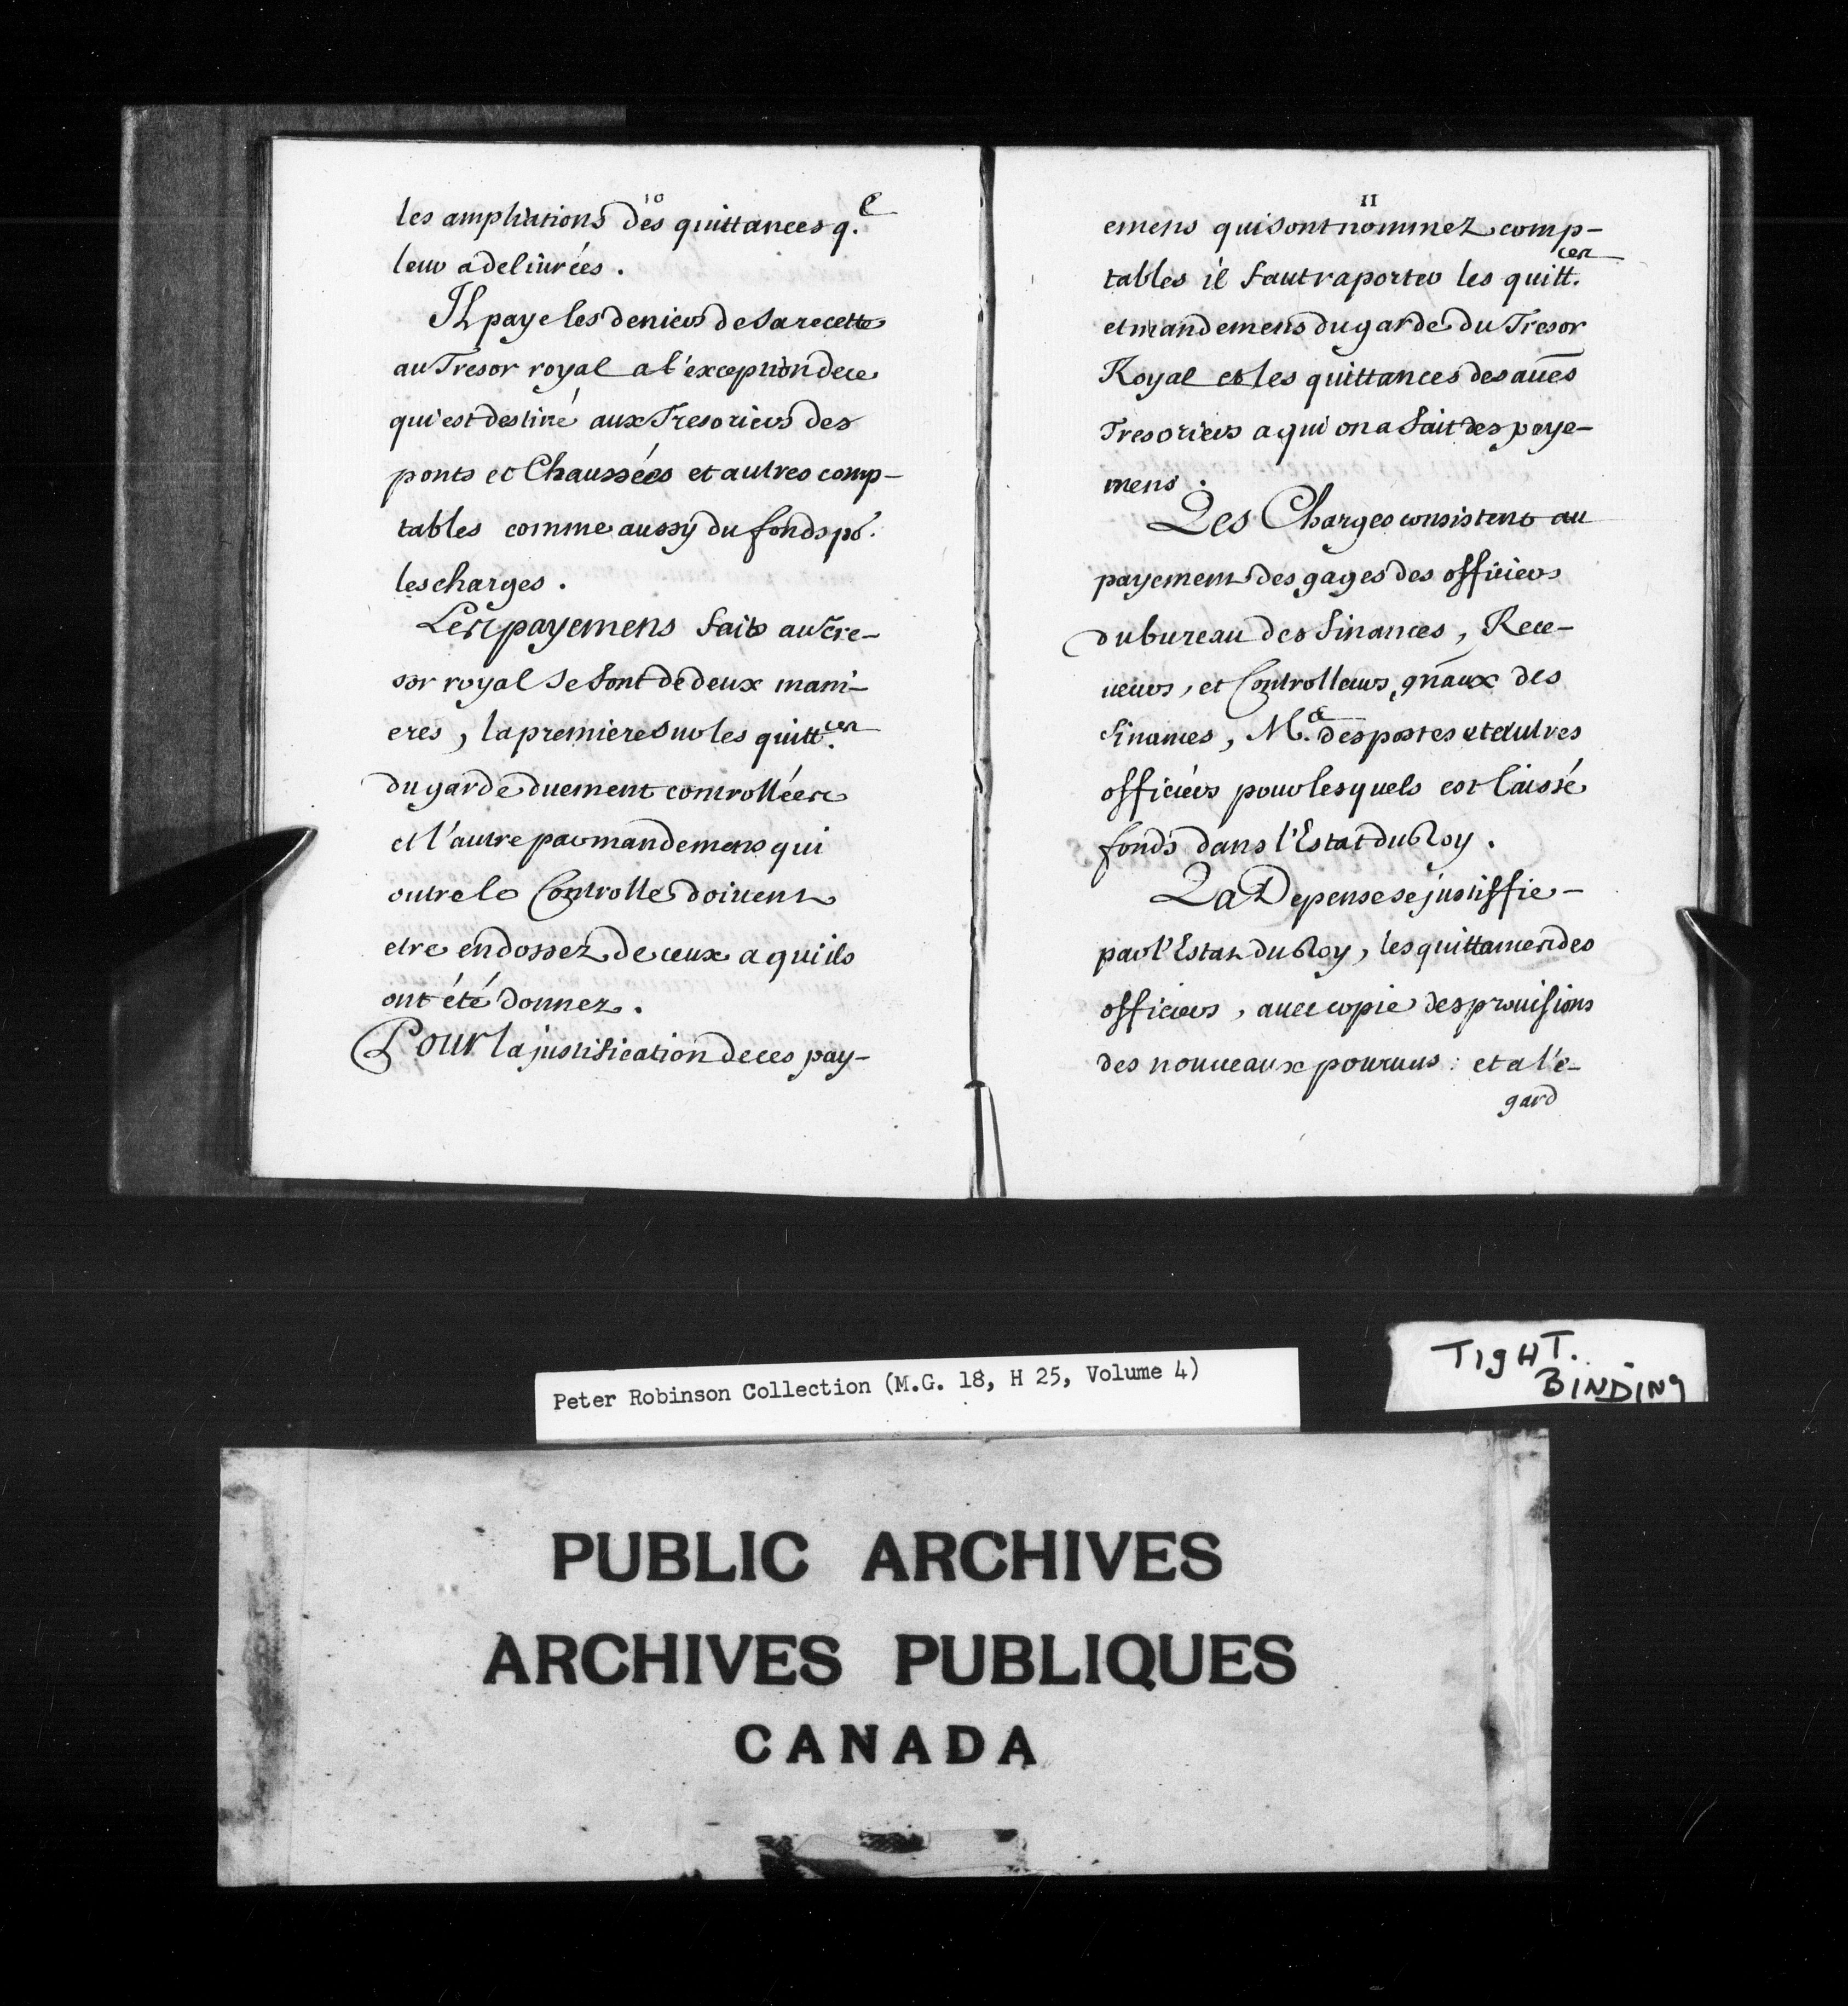 10
les ampliations des quittances q.e
leur a delivrées.
Il paye les deniers de sa recette
au Tresor royal a l'exception de ce
qui est destiné aux Tresoriers des
ponts et Chaussées et autres comp-
tables comme aussy du fonds pr.
les charges.
Les payemens faits au tre-
sor royal se font de deux mani-
eres, la premiere sur les quitt.ces
du garde duement controllées
et l'autre par mandemens qui
outre le Controlle doivent
etre endossez de ceux a qui ils
ont été donnez.
Pour la justification de ces pay-
11
emens qui sont nommez comp-
tables il faut raporter les quitt.ces
et mandemens du garde du Tresor
Royal et les quittances des aũes
Tresoriers a qui on a fait des paye-
mens.
Les Charges consistent au
payement des gages des officiers
du bureau des finances, Rece-
veurs, et Controlleurs gñaux des
finances, M.e des postes et autres
officiers pour lesquels est laissé
fonds dans l'Estat du Roy.
La Depense se justiffie-
par l'Estat du Roy, les quittances des
officiers, avec copie des provisions
des nouveaux pourvus: et a l'é-
gard
TIGHT.
BINDING
Peter Robinson Collection (M.G. 18, H 25, Volume 4)
PUBLIC ARCHIVES
ARCHIVES PUBLIQUES
CANADA